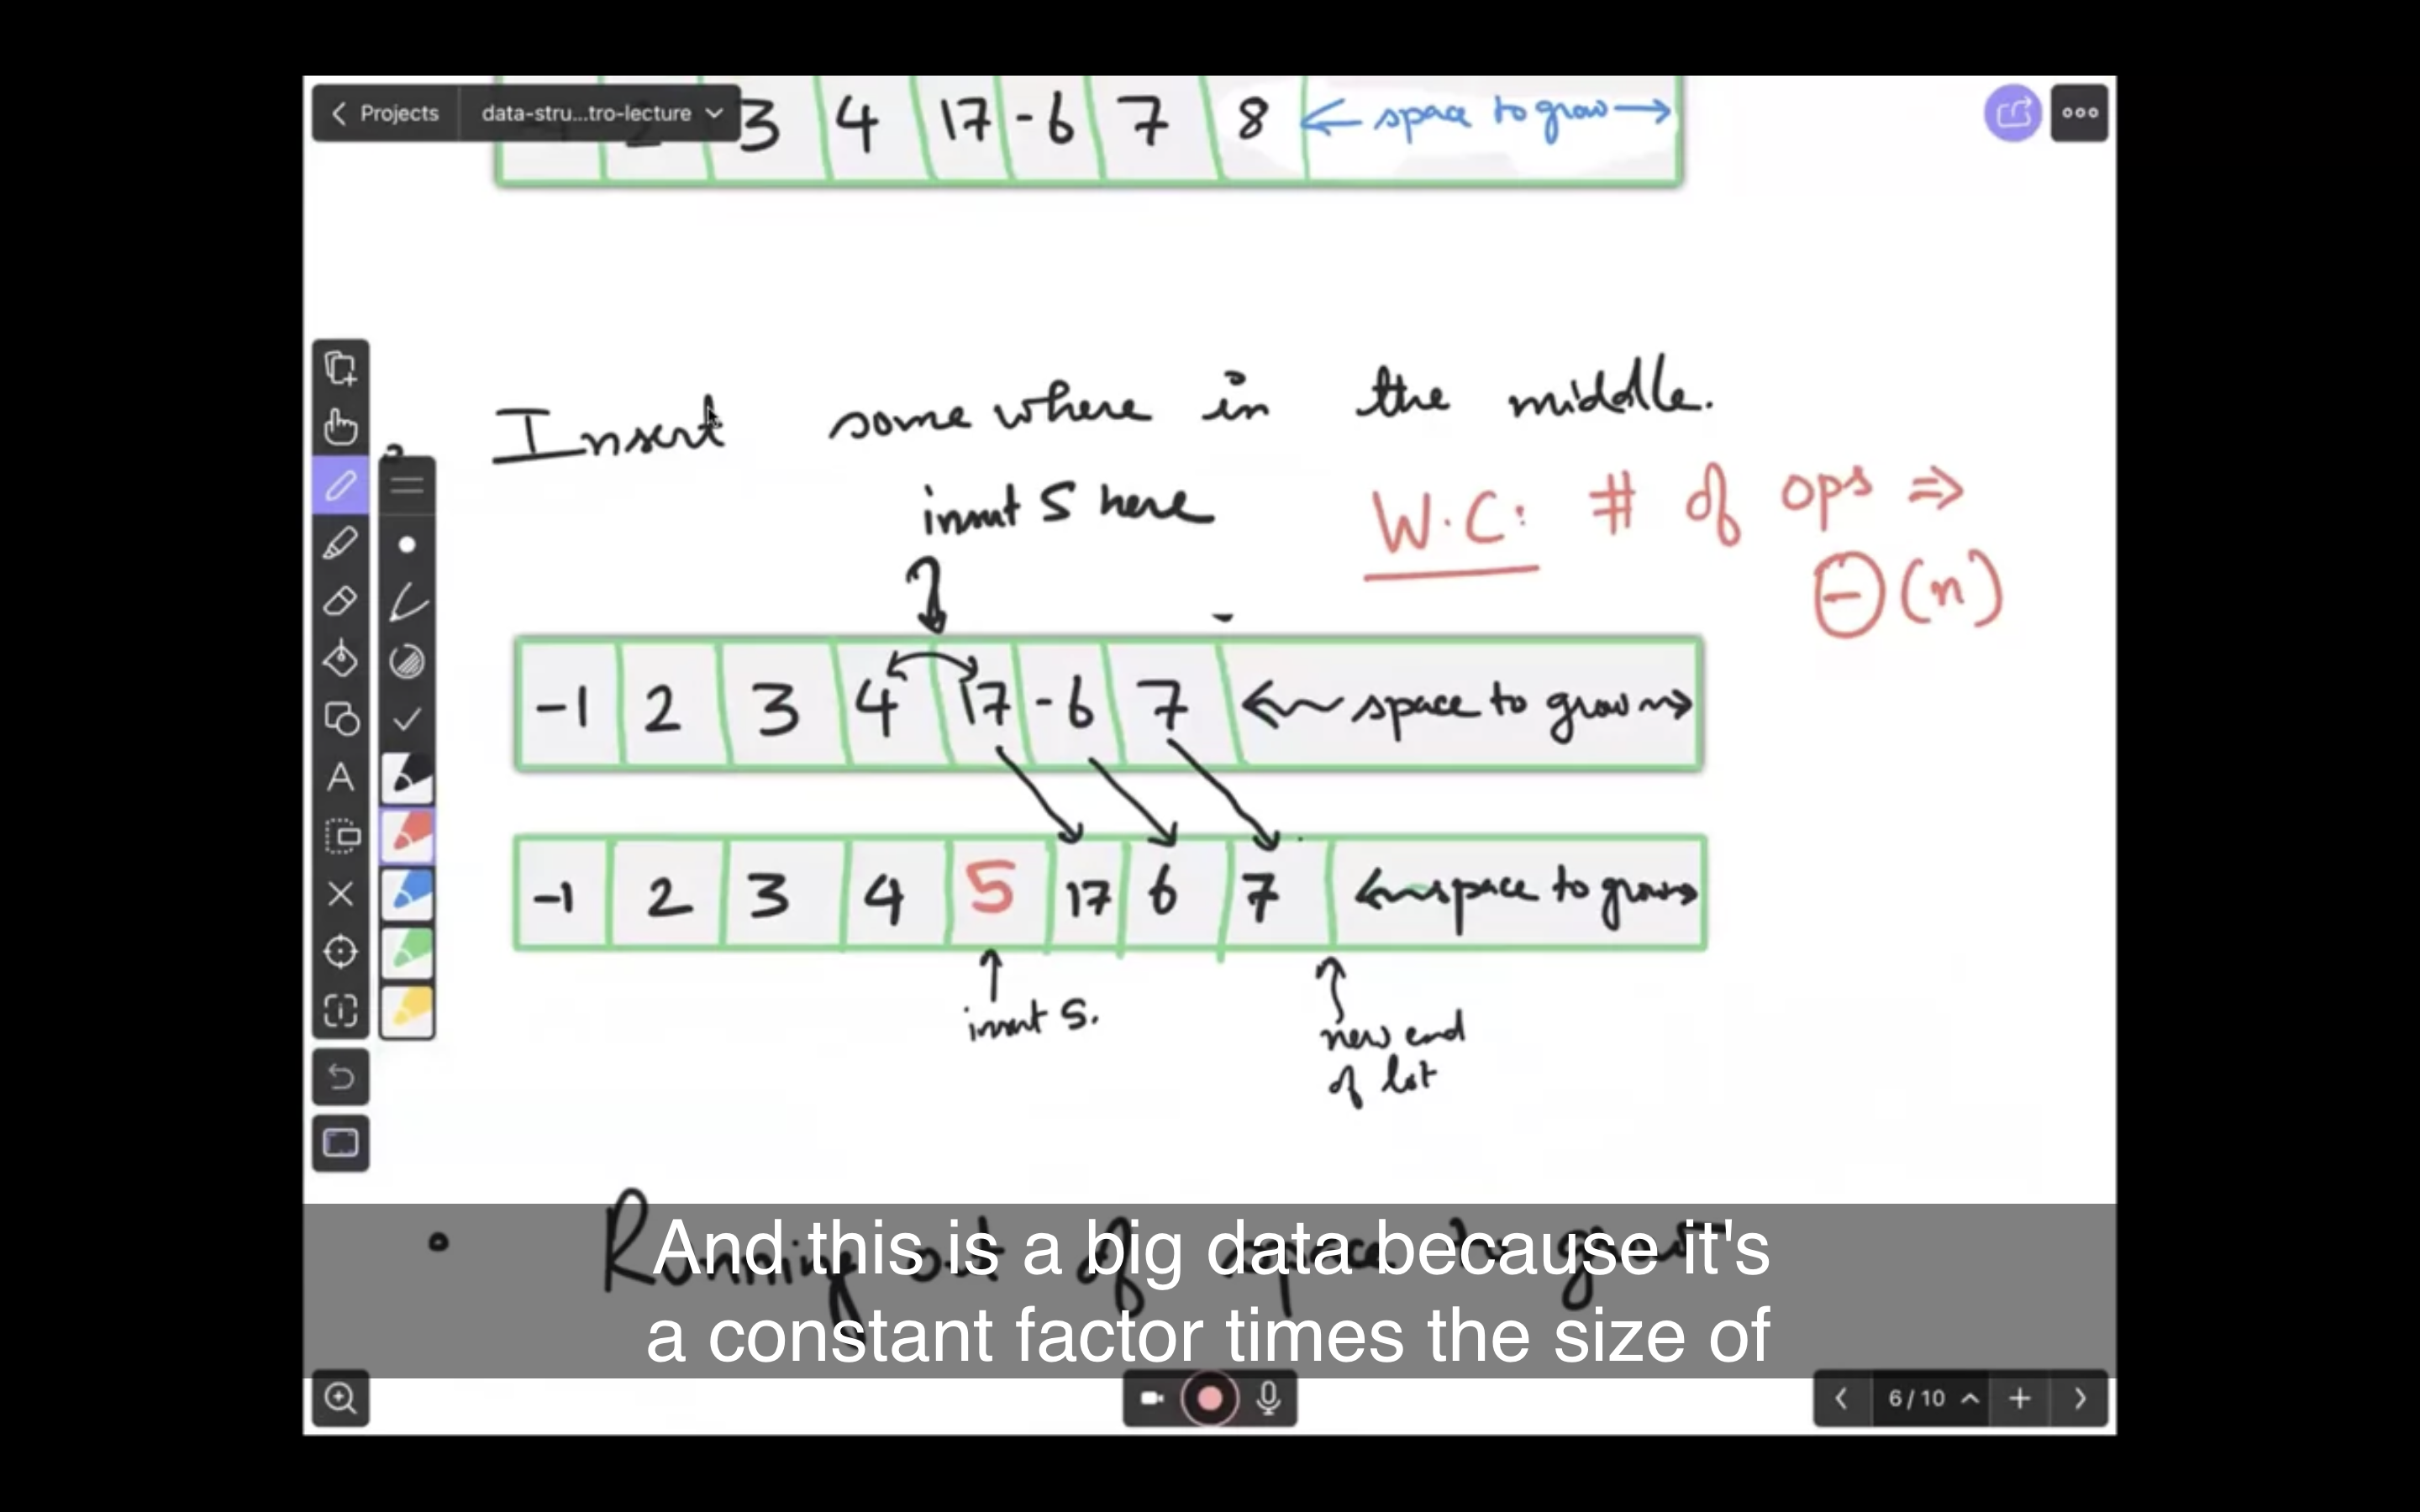 Projects
data-stru...tro-lecture
3 4 17 -6 7 8 space to grow
Insert some where in the middle.
insert 5 here
W.C: # of ops ⇒
Θ(n)
-1 2 3 4 17 -6 7 space to grow
-1 2 3 4 5 17 6 7 space to grow
insert 5.
new end
of list
Running out of space to grow
And this is a big data because it's
a constant factor times the size of
6 / 10